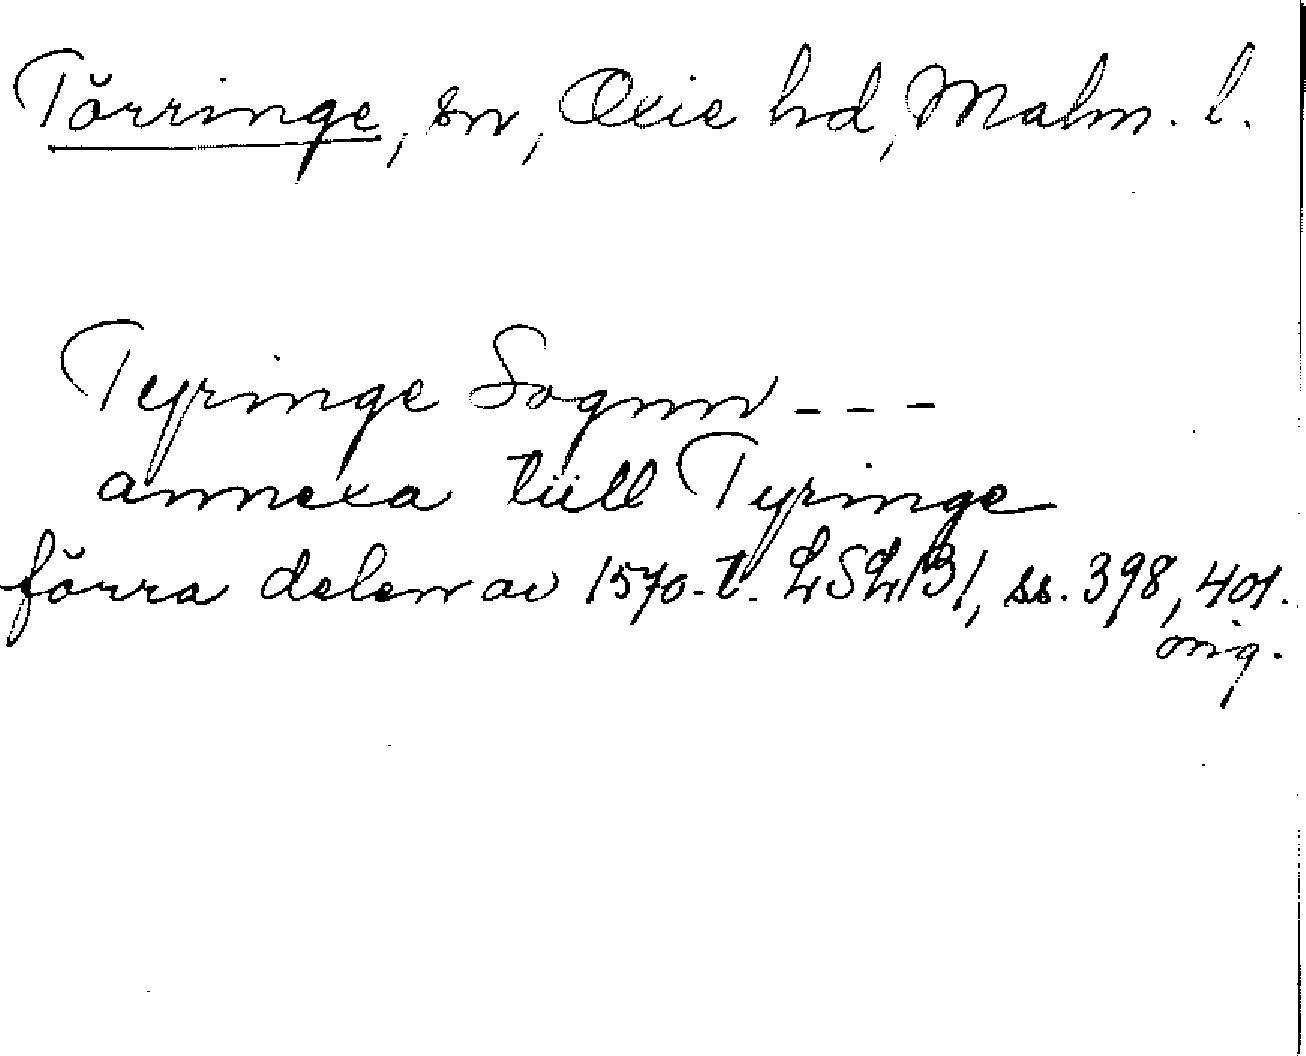 Törringe, sn, Oxie hd, Malm. l.
Tyringe Sognn - - -
annexa tiill Tyringe
förra delen av 1570-t. LSLB1, ss. 398, 401.
orig.